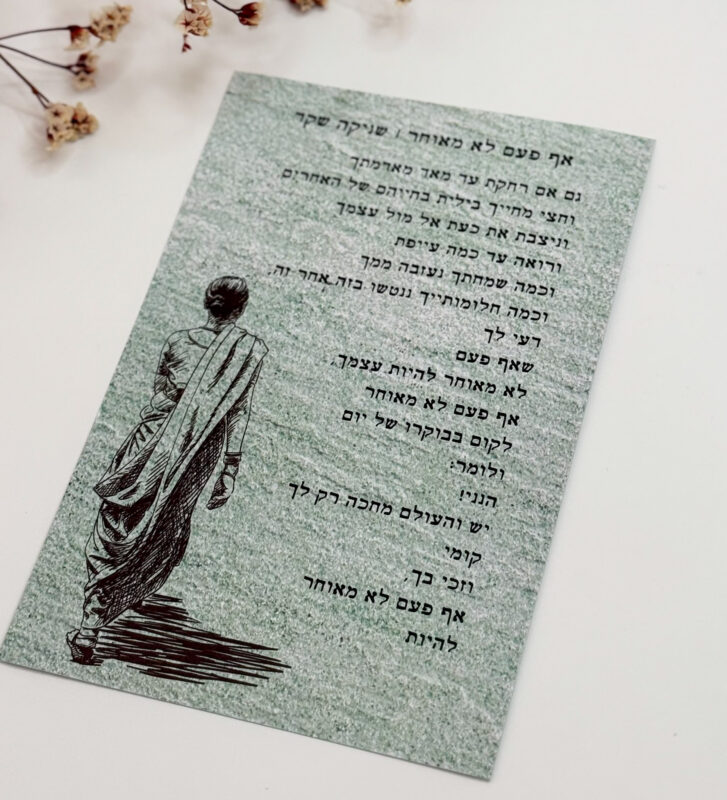 אף פעם לא מאוחר / שניקה שקר
גם אם רחקת עד מאד מאדמתך
וחצי מחייך בילית בחייהם של האחרים
וניצבת את כעת אל מול עצמך
ורואה עד כמה עייפת
וכמה שמחתך נעזבה ממך
וכמה חלומותייך ננטשו בזה אחר זה,
דעי לך
שאף פעם
לא מאוחר להיות עצמך,
אף פעם לא מאוחר
לקום בבוקרו של יום
ולומר:
הנני!
יש והעולם מחכה רק לך
קומי
וזכי בך,
אף פעם לא מאוחר
להיות